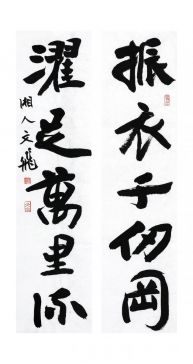 振衣千仞岡
濯足萬里流
湘人文飛